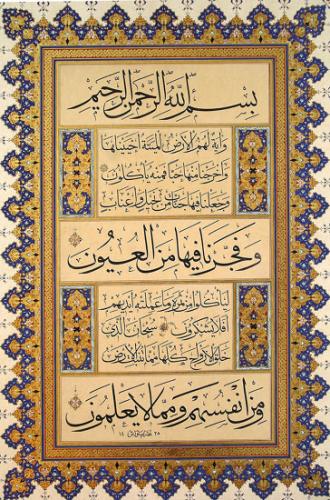 بسم الله الرحمن الرحيم
وآية لهم الأرض الميتة أحييناها
وأخرجنا منها حبا فمنه يأكلون
وجعلنا فيها جنات من نخيل وأعناب
وفجرنا فيها من العيون
ليأكلوا من ثمره وما عملته أيديهم
أفلا يشكرون سبحان الذي
خلق الأزواج كلها مما تنبت الأرض
ومن أنفسهم ومما لا يعلمون